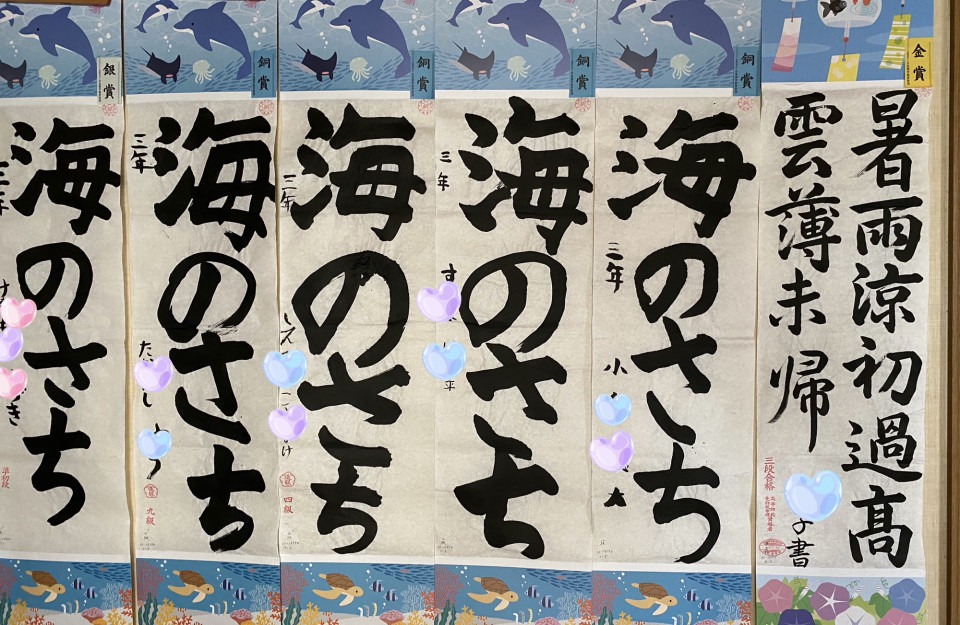 金賞
暑雨涼初過高
雲薄未帰
書
三段合格
銅賞
海のさち
三年
小
銅賞
海のさち
三年
す
平
銅賞
海のさち
三年
け
四級
銅賞
海のさち
三年
た
し
九級
銀賞
海のさち
三年
け
き
準初段